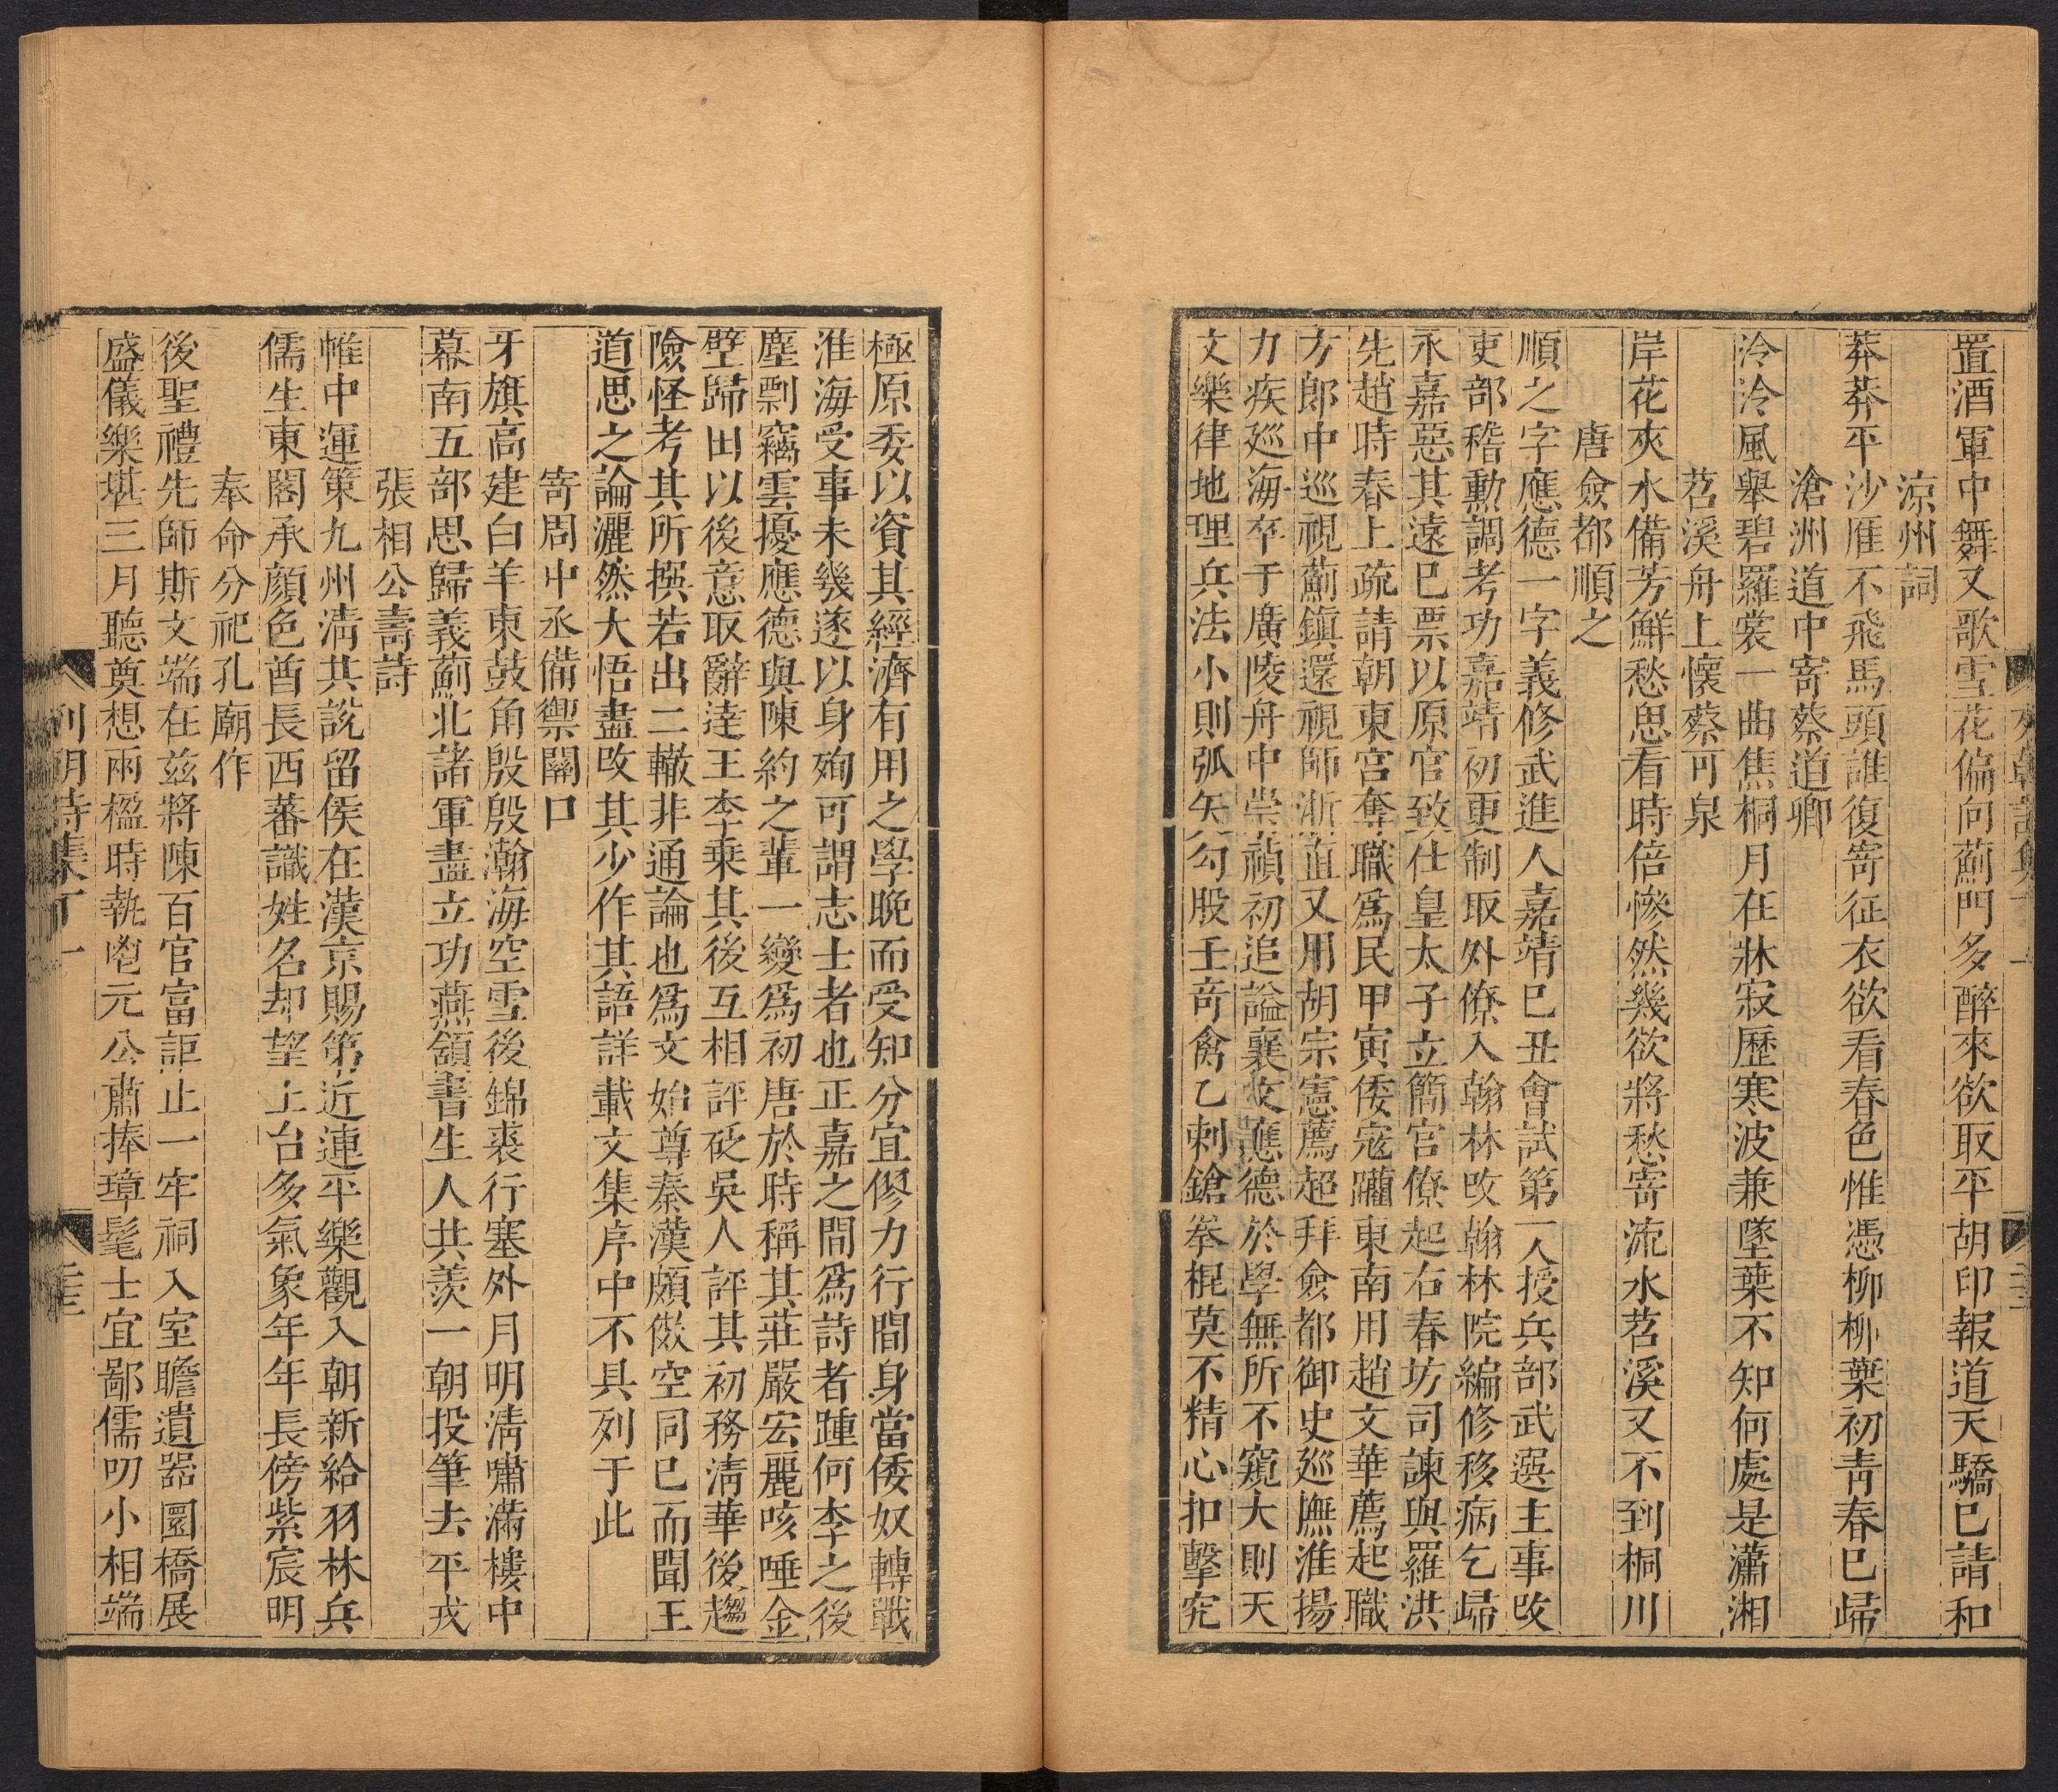 置酒軍中舞又歌雪花偏向薊門多醉來欲取平胡印報道天驕已請和
涼州詞
莽莽平沙雁不飛馬頭誰復寄征衣欲看春色惟憑柳柳葉初青春已歸
滄洲道中寄蔡道卿
泠泠風舉碧羅裳一曲焦桐月在牀寂歷寒波兼墜葉不知何處是瀟湘
苕溪舟上懷蔡可泉
岸花夾水備芳鮮愁思看時倍慘然幾欲將愁寄流水苕溪又不到桐川
唐僉都順之
順之字應德一字義修武進人嘉靖己丑會試第一人授兵部武選主事改
吏部稽勳調考功嘉靖初更制取外僚入翰林改翰林院編修移病乞歸
永嘉惡其遠已票以原官致仕皇太子立簡宮僚起右春坊司諫與羅洪
先趙時春上疏請朝東宮奪職爲民甲寅倭寇躪東南用趙文華薦起職
方郎中巡視薊鎮還視師浙直又用胡宗憲薦超拜僉都御史廵撫淮揚
力疾廵海卒于廣陵舟中崇禎初追謚襄文應德於學無所不窺大則天
文樂律地理兵法小則弧矢勾股壬奇禽乙刺鎗拳棍莫不精心扣擊究
極原委以資其經濟有用之學晚而受知分宜僇力行間身當倭奴轉戰
淮海受事未幾遂以身殉可謂志士者也正嘉之間爲詩者踵何李之後
塵剽竊雲擾應德與陳約之輩一變爲初唐於時稱其莊嚴宏麗咳唾金
璧歸田以後意取辭達王李乗其後互相評砭吳人評其初務淸華後趨
險怪考其所撰若出二轍非通論也爲文始尊秦漢頗倣空同已而聞王
道思之論灑然大悟盡改其少作其語詳載文集序中不具列于此
寄周中丞備禦關口
牙旗高建白羊東鼓角殷殷瀚海空雪後錦裘行塞外月明淸嘯滿樓中
幕南五部思歸義薊北諸軍盡立功燕頷書生人共羨一朝投筆去平戎
張相公壽詩
帷中運策九州淸共說留侯在漢京賜第近連平樂觀入朝新給羽林兵
儒生東閣承顏色酋長西蕃識姓名却望上台多氣象年年長傍紫宸明
奉命分祀孔廟作
後聖禮先師斯文端在兹將陳百官富詎止一牢祠入室瞻遺器圜橋展
盛儀樂堪三月聽奠想兩楹時執鬯元公肅捧璋髦士宜鄙儒叨小相端